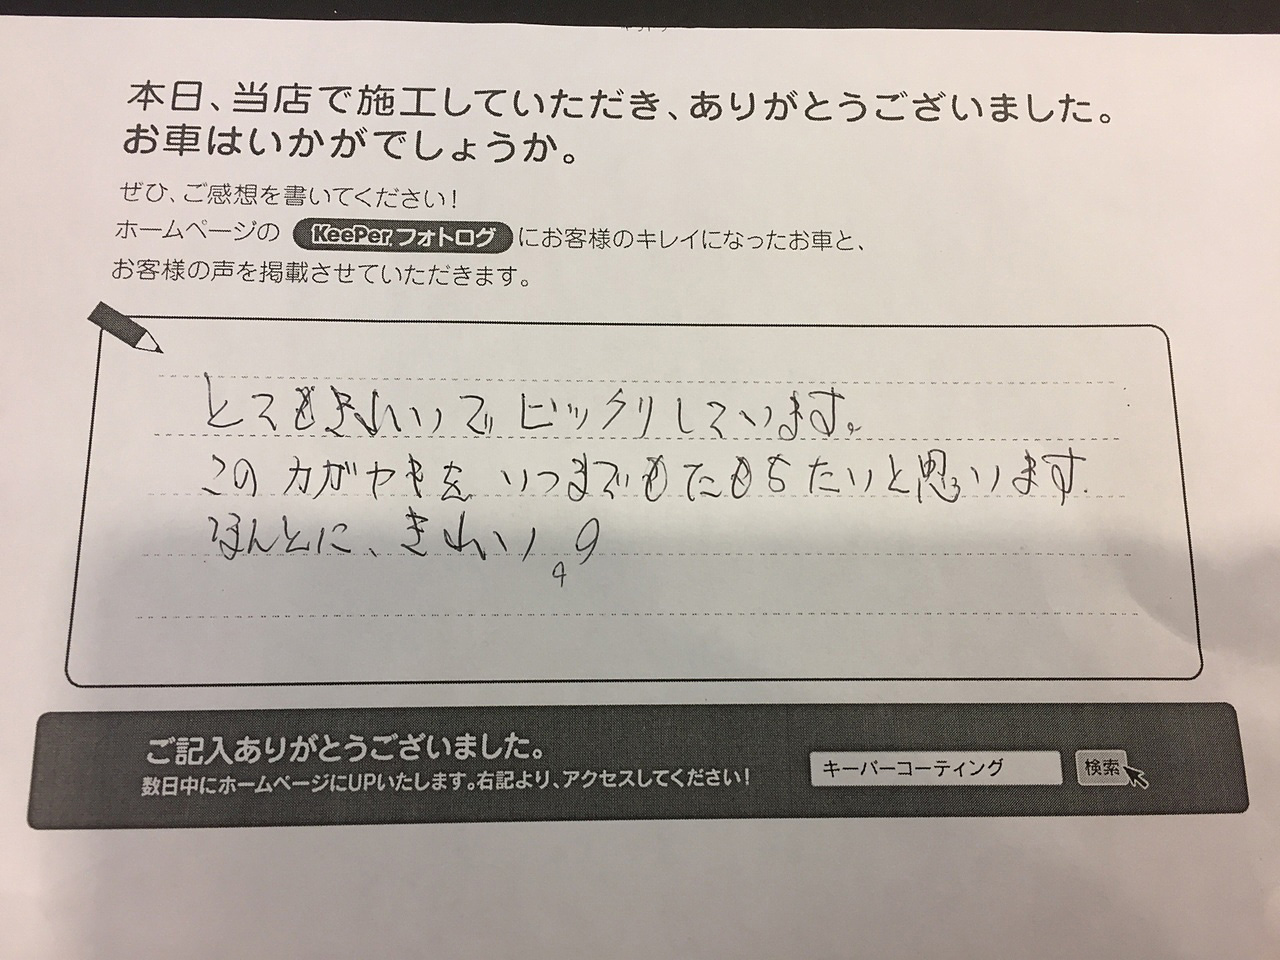 本日、当店で施工していただき、ありがとうございました。
お車はいかがでしょうか。
ぜひ、ご感想を書いてください!
ホームページの KeePer フォトログ にお客様のキレイになったお車と、
お客様の声を掲載させていただきます。
とてもきれいで ビックリしています。
このカガヤキを いつまでもたもちたいと思います.
ほんとに、きれい
ご記入ありがとうございました。
数日中にホームページにUPいたします。右記より、アクセスしてください!
キーパーコーティング 検索